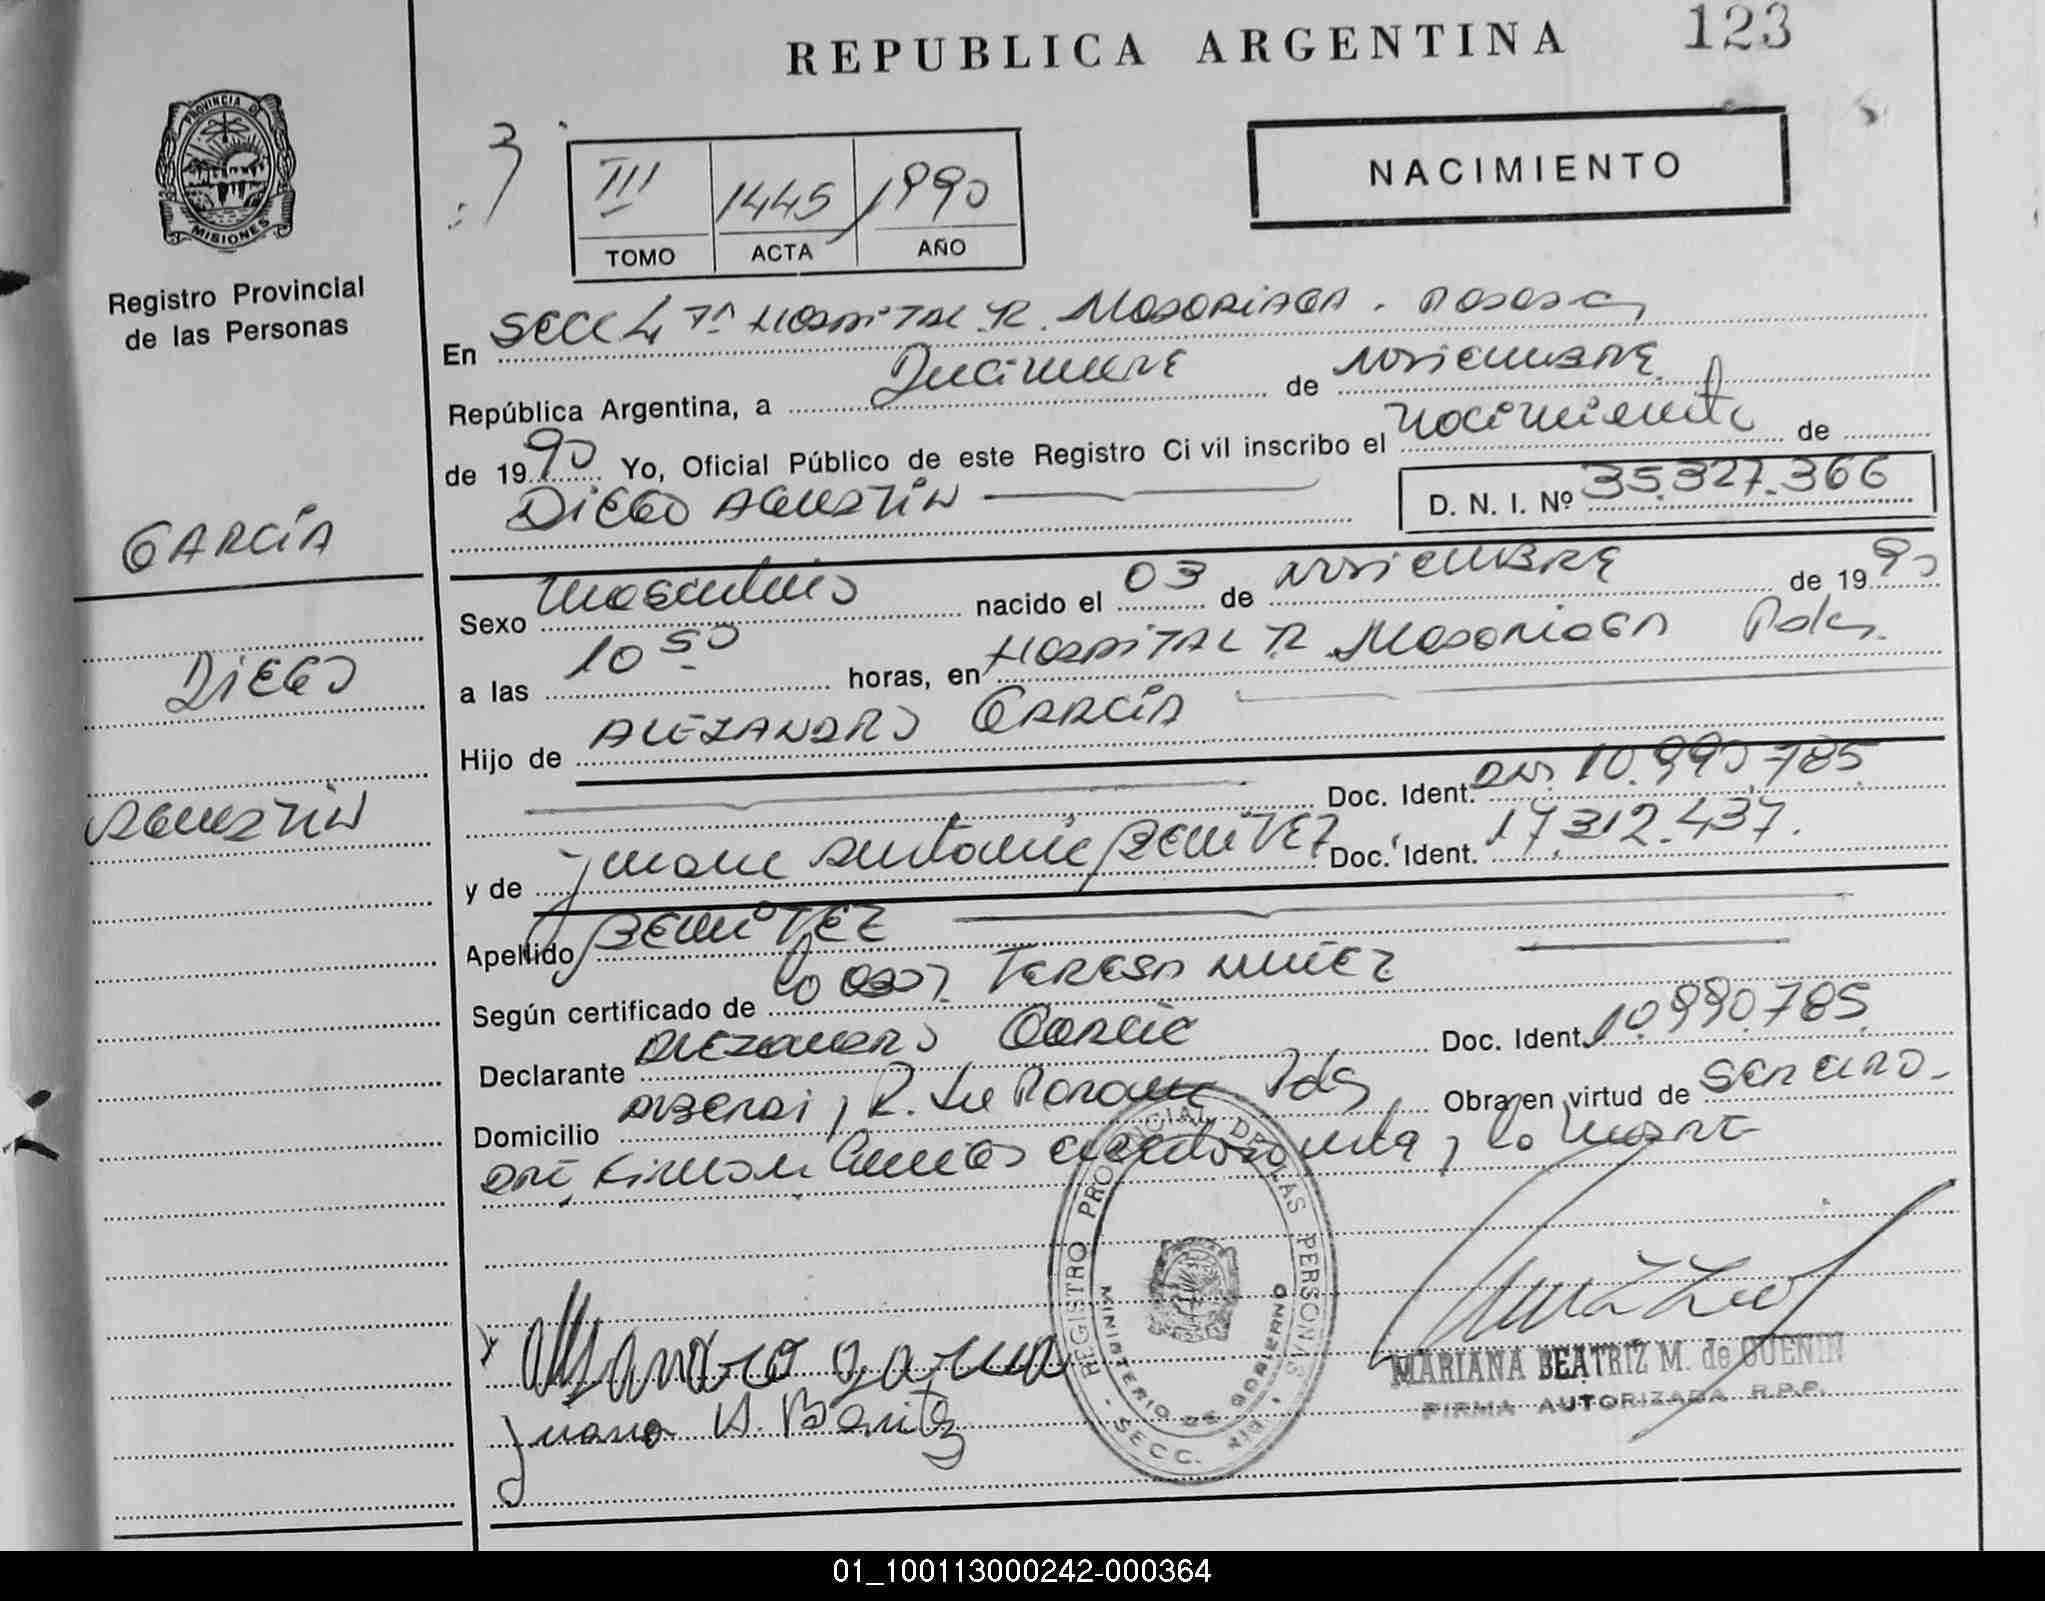 REPUBLICA ARGENTINA 123
NACIMIENTO
III 1445 1990
TOMO ACTA AÑO
PROVINCIA DE MISIONES
Registro Provincial
de las Personas
En SECC 4TA HOSPITAL R. MADARIAGA. POSADAS
República Argentina, a de NOVIEMBRE
de 1990 Yo, Oficial Público de este Registro Civil inscribo el nacimiento de
DIEGO AGUSTIN D. N. I. Nº 35.327.366
GARCÍA
DIEGO
AGUSTIN
Sexo masculino nacido el 03 de NOVIEMBRE de 1990
a las 10 50 horas, en HOSPITAL R. MADARIAGA Pdas.
Hijo de ALEJANDRO GARCÍA
Doc. Ident. DNI. 10.990.785
y de Juana Antonia BENITEZ Doc. Ident. 17.312.437.
Apellido BENITEZ
Según certificado de TERESA NUÑEZ
Declarante ALEJANDRO García Doc. Ident. 10.990.785
Domicilio Pdas Obra en virtud de
la MADRE
REGISTRO PROVINCIAL DE LAS PERSONAS
MINISTERIO DE GOBIERNO
SECC.
Alejandro garcia
Juana A. Benitez
MARIANA BEATRIZ M. de GUENIN
FIRMA AUTORIZADA R.P.P.
01_100113000242-000364